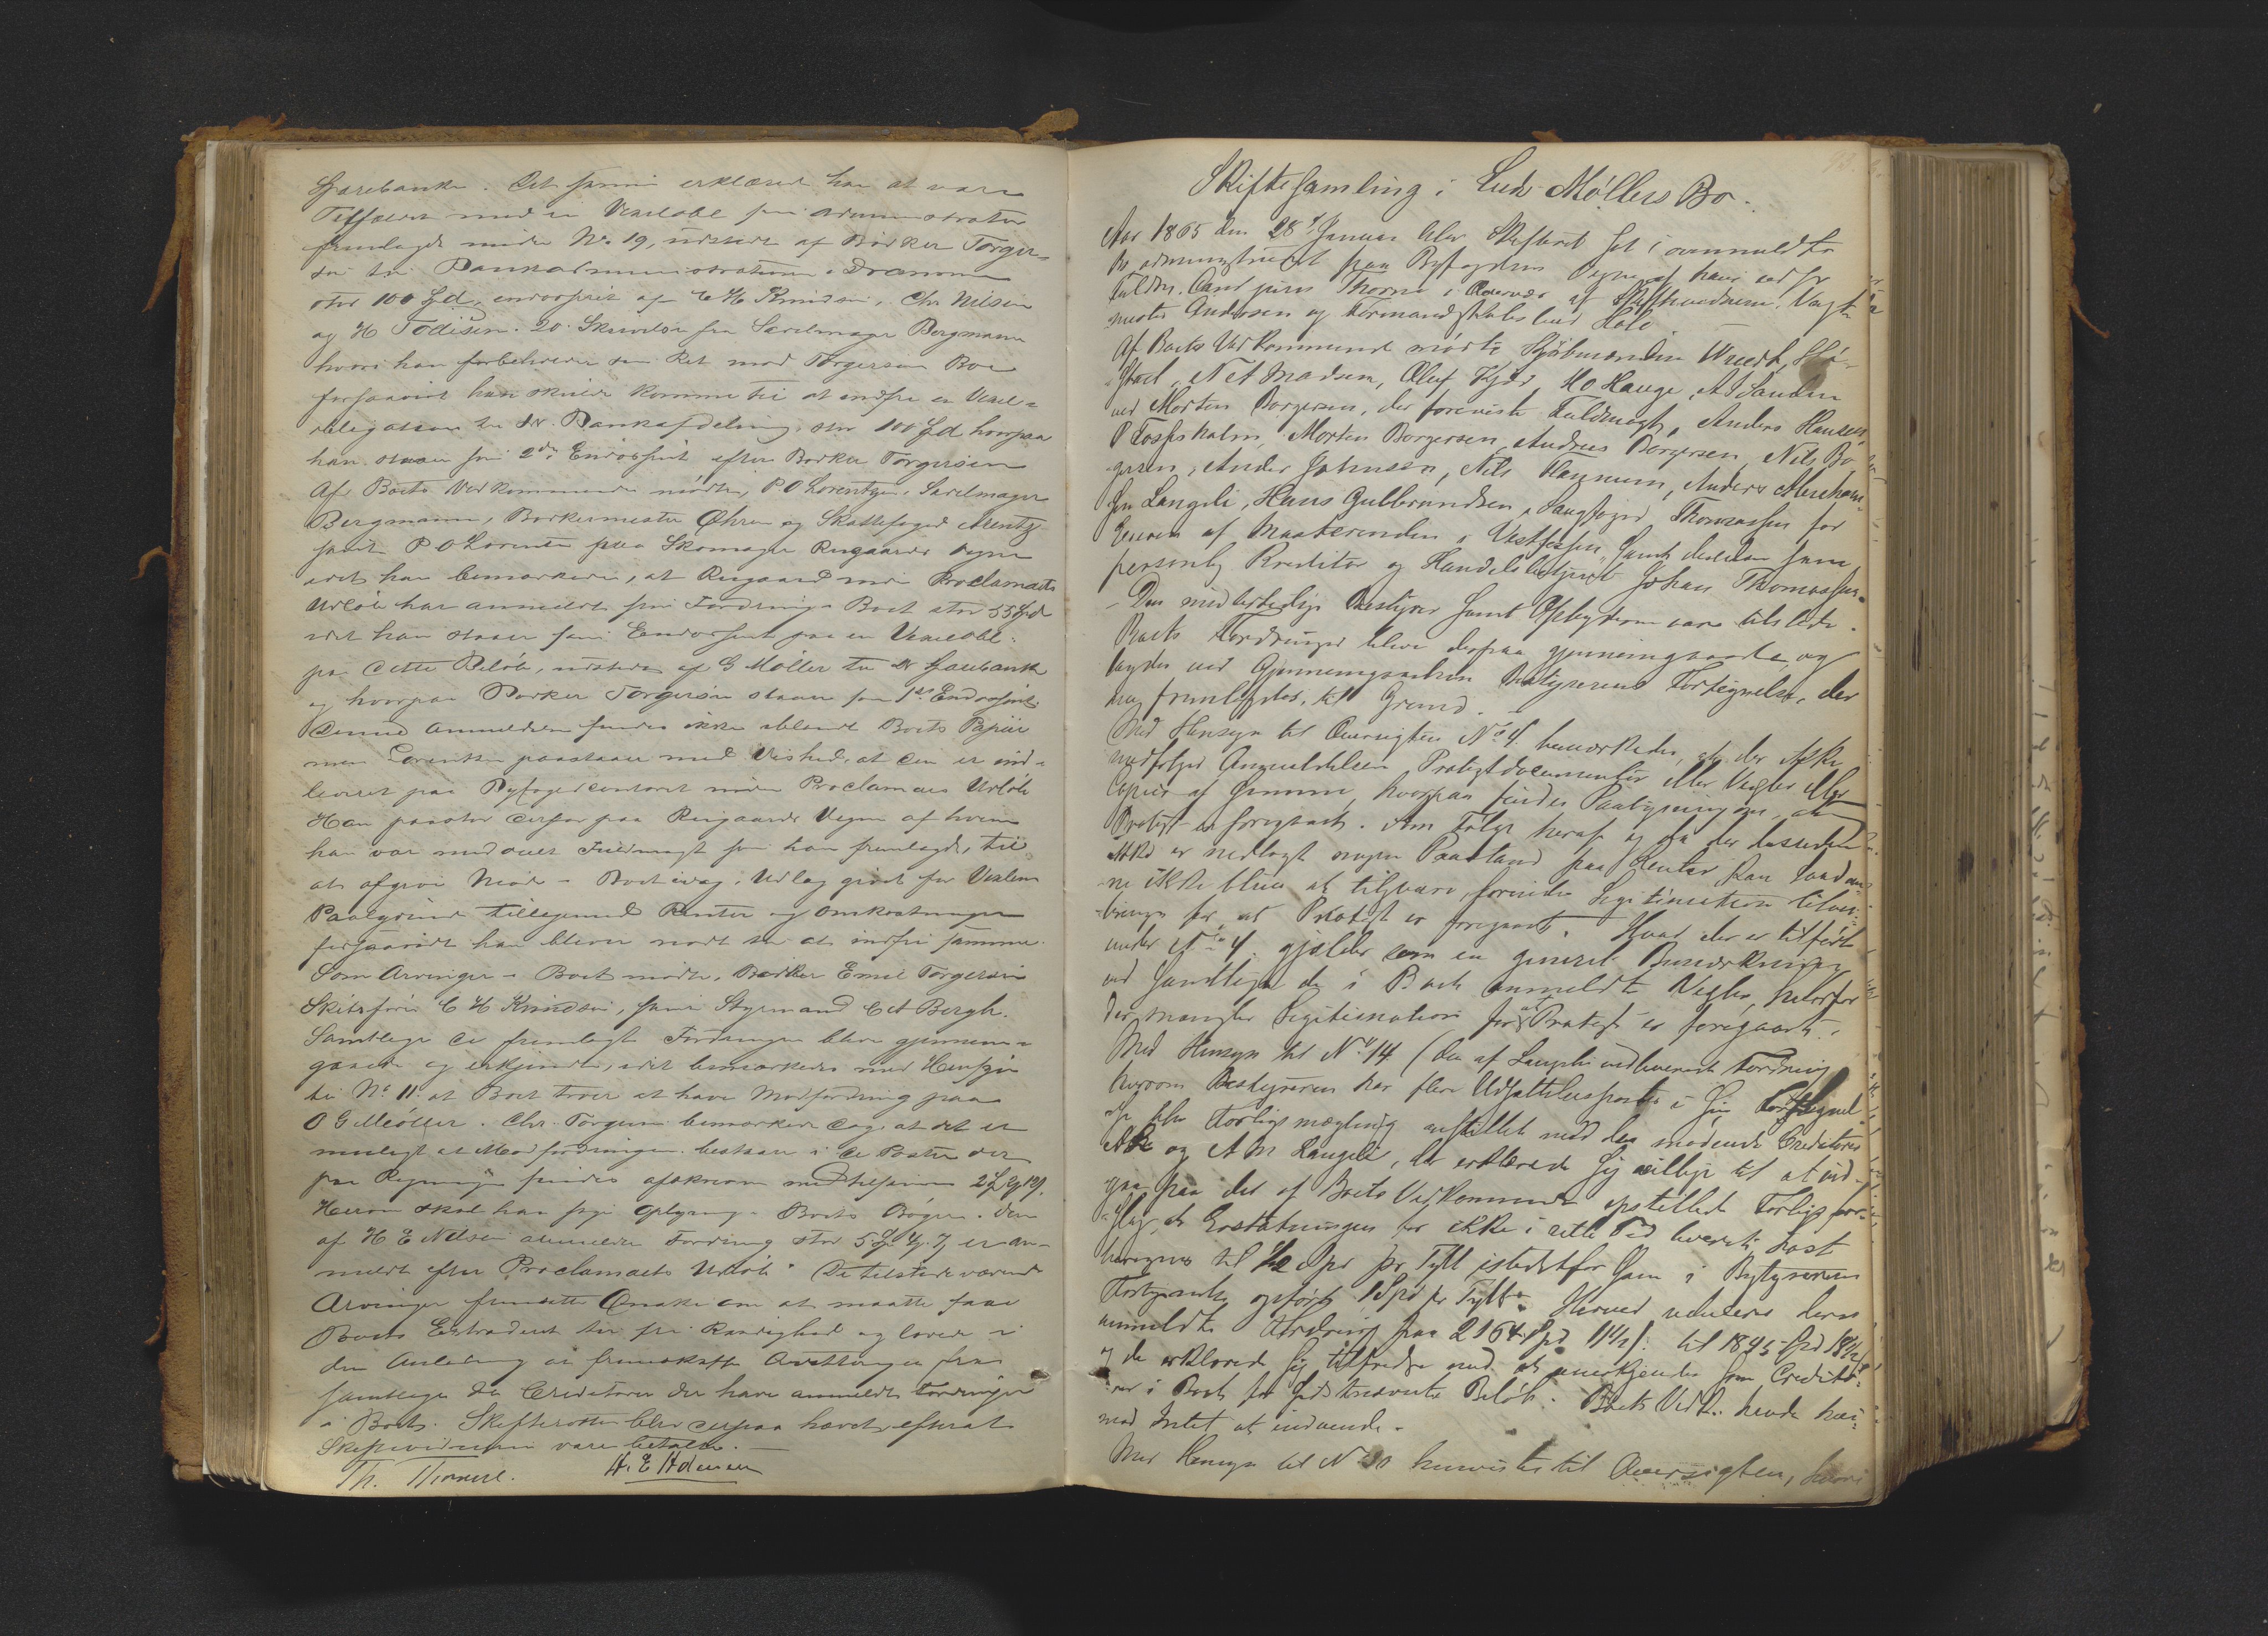 Sparebanken. Det samme erklæred han at være
Tilfældet med en Vexelobl som Administrator
fremlagde under No 19, udstedt af Barker Torger-
sen til Bankadministrationen i Drammen
stor 100 Spd, endosseret af C H Knudsen, Chr Nilsen
og H Todisen. 20. Skrivelse fra Sadelmager Bergmann
hvori han forbeholder sin Ret mod Torgersens Bo
forsaavidt han skulde komme til at indfri en Vexel-
obligation til Dr. Bankafdeling, stor 100 Spd hvorpaa
han staaer som 2den Endossent efter Barker Torgersen
Af Boets Vedkommende mødte, P O Lorentzen, Sadelmager
Bergmann, Barkermester Øhren og Skattefoged Arentz
samt P O Lorentzen paa Skomager Ringaards Vegne
idet han bemærkede, at Ringaard inden Proclamaets
Udløb har anmeldt sin Fordring i Boet stor 55 Spd
idet han staaer som Endossent paa en Vexelobl.
paa dette Beløb, udstedt af G Møller til Dr Sparebank
og hvorpaa Barker Torgersen staaer som 1ste Endossent
Denne Anmeldelse findes ikke iblandt Boets Papirer
men Lorentzen paastaaer med Vished, at den er ind-
leveret paa Byfogedcontoret inden Proclamaets Udløb
Han paastod derfor paa Ringaards Vegne af hvem
han var meddelt Fuldmagt som han fremlagde, til
at afgive Møde i Boet idag, Udlæg givet for Vexlens
Paalydende tilligemed Renter og Omkostninger
forsaavidt han bliver nødt til at indfri samme.
Som Arvinger i Boet mødte, Barker Emil Torgersen
Skibsfører C H Knudsen, samt Styrmand C A Bergh.
Samtlige de fremlagte Fordringer bleve gjennem-
gaaede og erkjendte, idet bemærkedes med Hensyn
til No 11. at Boet troer at have Modfordring paa
O G Møller. Chr. Torgersen bemærkede dog, at det er
muligt at Modfordringen bestaaer i de Poster der
paa Regningen findes afskrevne med tilsammen
Herom skal han søge Oplysning i Boets Bøger. Den
af H E Nilsen anmeldte Fordring stor 5 Spd er an-
meldt efter Proclamaets Udløb. De tilstedeværende
Arvinger fremsatte Ønske om at maatte faae
Boets Extraderet til fri Raadighed og lovede i
den Anledning at fremskaffe Qvitteringer fra
samtlige de Creditorer der have anmeldt Fordringer
i Boet. Skifteretten blev derpaa hævet, efterat
Skiftevidnerne vare betalte. —
Th. Thorne. H. E. Holmen
Skiftesamling i Lud. Møllers Bo.
Aar 1865 den 28de Januar blev Skifteret sat i ovenmeldte
Bo administreret paa Byfogdens Vegne af hans edsv.
Fuldm. Cand juris Thorne i Overvær af Skiftevidnerne: Vagt-
mester Andersen og Formandskabsbud Hole
Af Boets Vedkommende mødte Kjøbmændene
N A Madsen, Oluf Kjær, H O Hauge, A Sanden
ved Morten Borgersen, der foreviste Fuldmagt, Anders Hansen
Morten Borgersen, Andreas Borgersen, Nils Bor-
gersen, Anders Johnsen, Nils Haavum, Anders
Langeli, Hans Gulbrandsen, Saugfoged Thomassen for
Eieren af i Vestfossen, samt desuden som
personlig Kreditor og Handelsbetjent Johan Thomassen.
– Den midlertidige Bestyrer samt Opbyderen vare tilstede.
Boets Fordringer bleve derpaa gjennemgaaede, og
lagdes ved Gjennemgaaelsen Bestyrerens Fortegnelse, der
nu fremlagdes, til Grund. –
Med Hensyn til Oversigten No 4. bemærkedes, at der ikke
medfølger Anmeldelsen Protestdocumenter eller Vexler eller
Copier af samme, hvorpaa findes Paategning om, at
Protest er foregaaet. Som Følge heraf og da der desuden
ikke er nedlagt nogen Paastand paa Renter kan saadan-
ne ikke blive at tilsvare, forinden Legitimation tilvei-
bringes for, at Protest er foregaaet. Hvad der er tilført
under No 4. gjælder som en generel Bemærkning
ved samtlige de i Boet anmeldte Vexler, hvorfor
der mangler Legitimation for at Protest er foregaaet.
Med Hensyn til No 14 (den af Langeli indleverede Fordring
hvorom Bestyreren har flere Udsættelsesposter i sin Fortegnel-
se blev Forligsmægling anstillet med den mødende Creditorer
og A M Langeli, der erklærede sig villige til at ind-
gaa paa det af Boets Vedkommende opstillede Forligsfor-
slag, at Erstatningen for ikke i rette Tid leveret Last
beregnes til 1/2 Spd pr Tylt istedetfor som i Bestyrerens
Fortegnelse opført 1 Spd pr Tylt. Herved reduceres deres
anmeldte Fordring fra 2164 Spd 11½ f: til 1895 Spd 18½ f
og de erklærede sig tilfredse med at anerkjendes som Credito-
rer i Boet for sidstnævnte Beløb. Boets Vedk. havde her-
mod Intet at indvende. –
Med Hensyn til No 30 henvistes til Oversigten, hvori